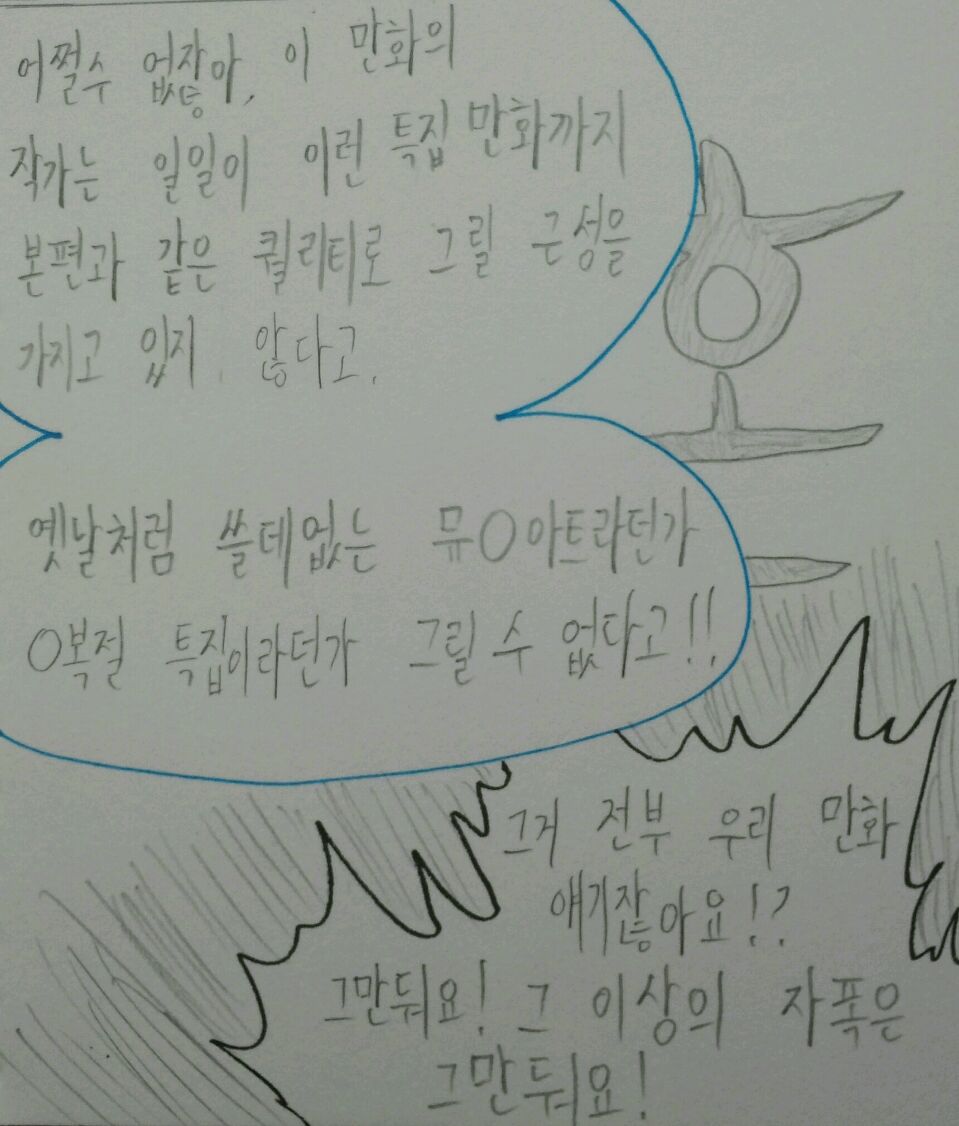 어쩔수 없잖아, 이 만화의
작가는 일일이 이런 특집 만화까지
본편과 같은 퀄리티로 그릴 근성을
가지고 있지 않다고.
옛날처럼 쓸데없는 뮤○아트라던가
○복절 특집이라던가 그릴 수 없다고!!
그거 전부 우리 만화
얘기잖아요!?
그만둬요! 그 이상의 자폭은
그만둬요!